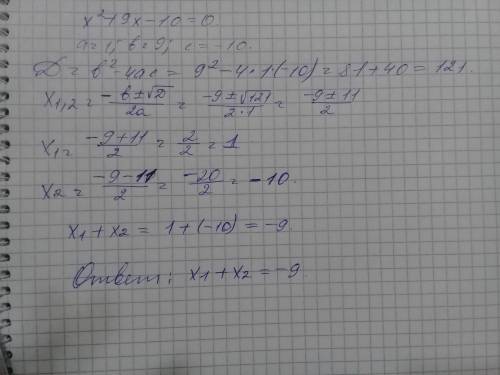 x²+9x-10=0
a=1; b=9; c=-10.
D= b²-4ac= 9²-4*1(-10)=81+40=121.
x1,2= -b±√D/2a = -9±√121/2·1 = -9±11/2
x1= -9+11/2 = 2/2 = 1
x2= -9-11/2 = -20/2 = -10.
x1+x2= 1+(-10)=-9.
Ответ: x1+x2=-9.